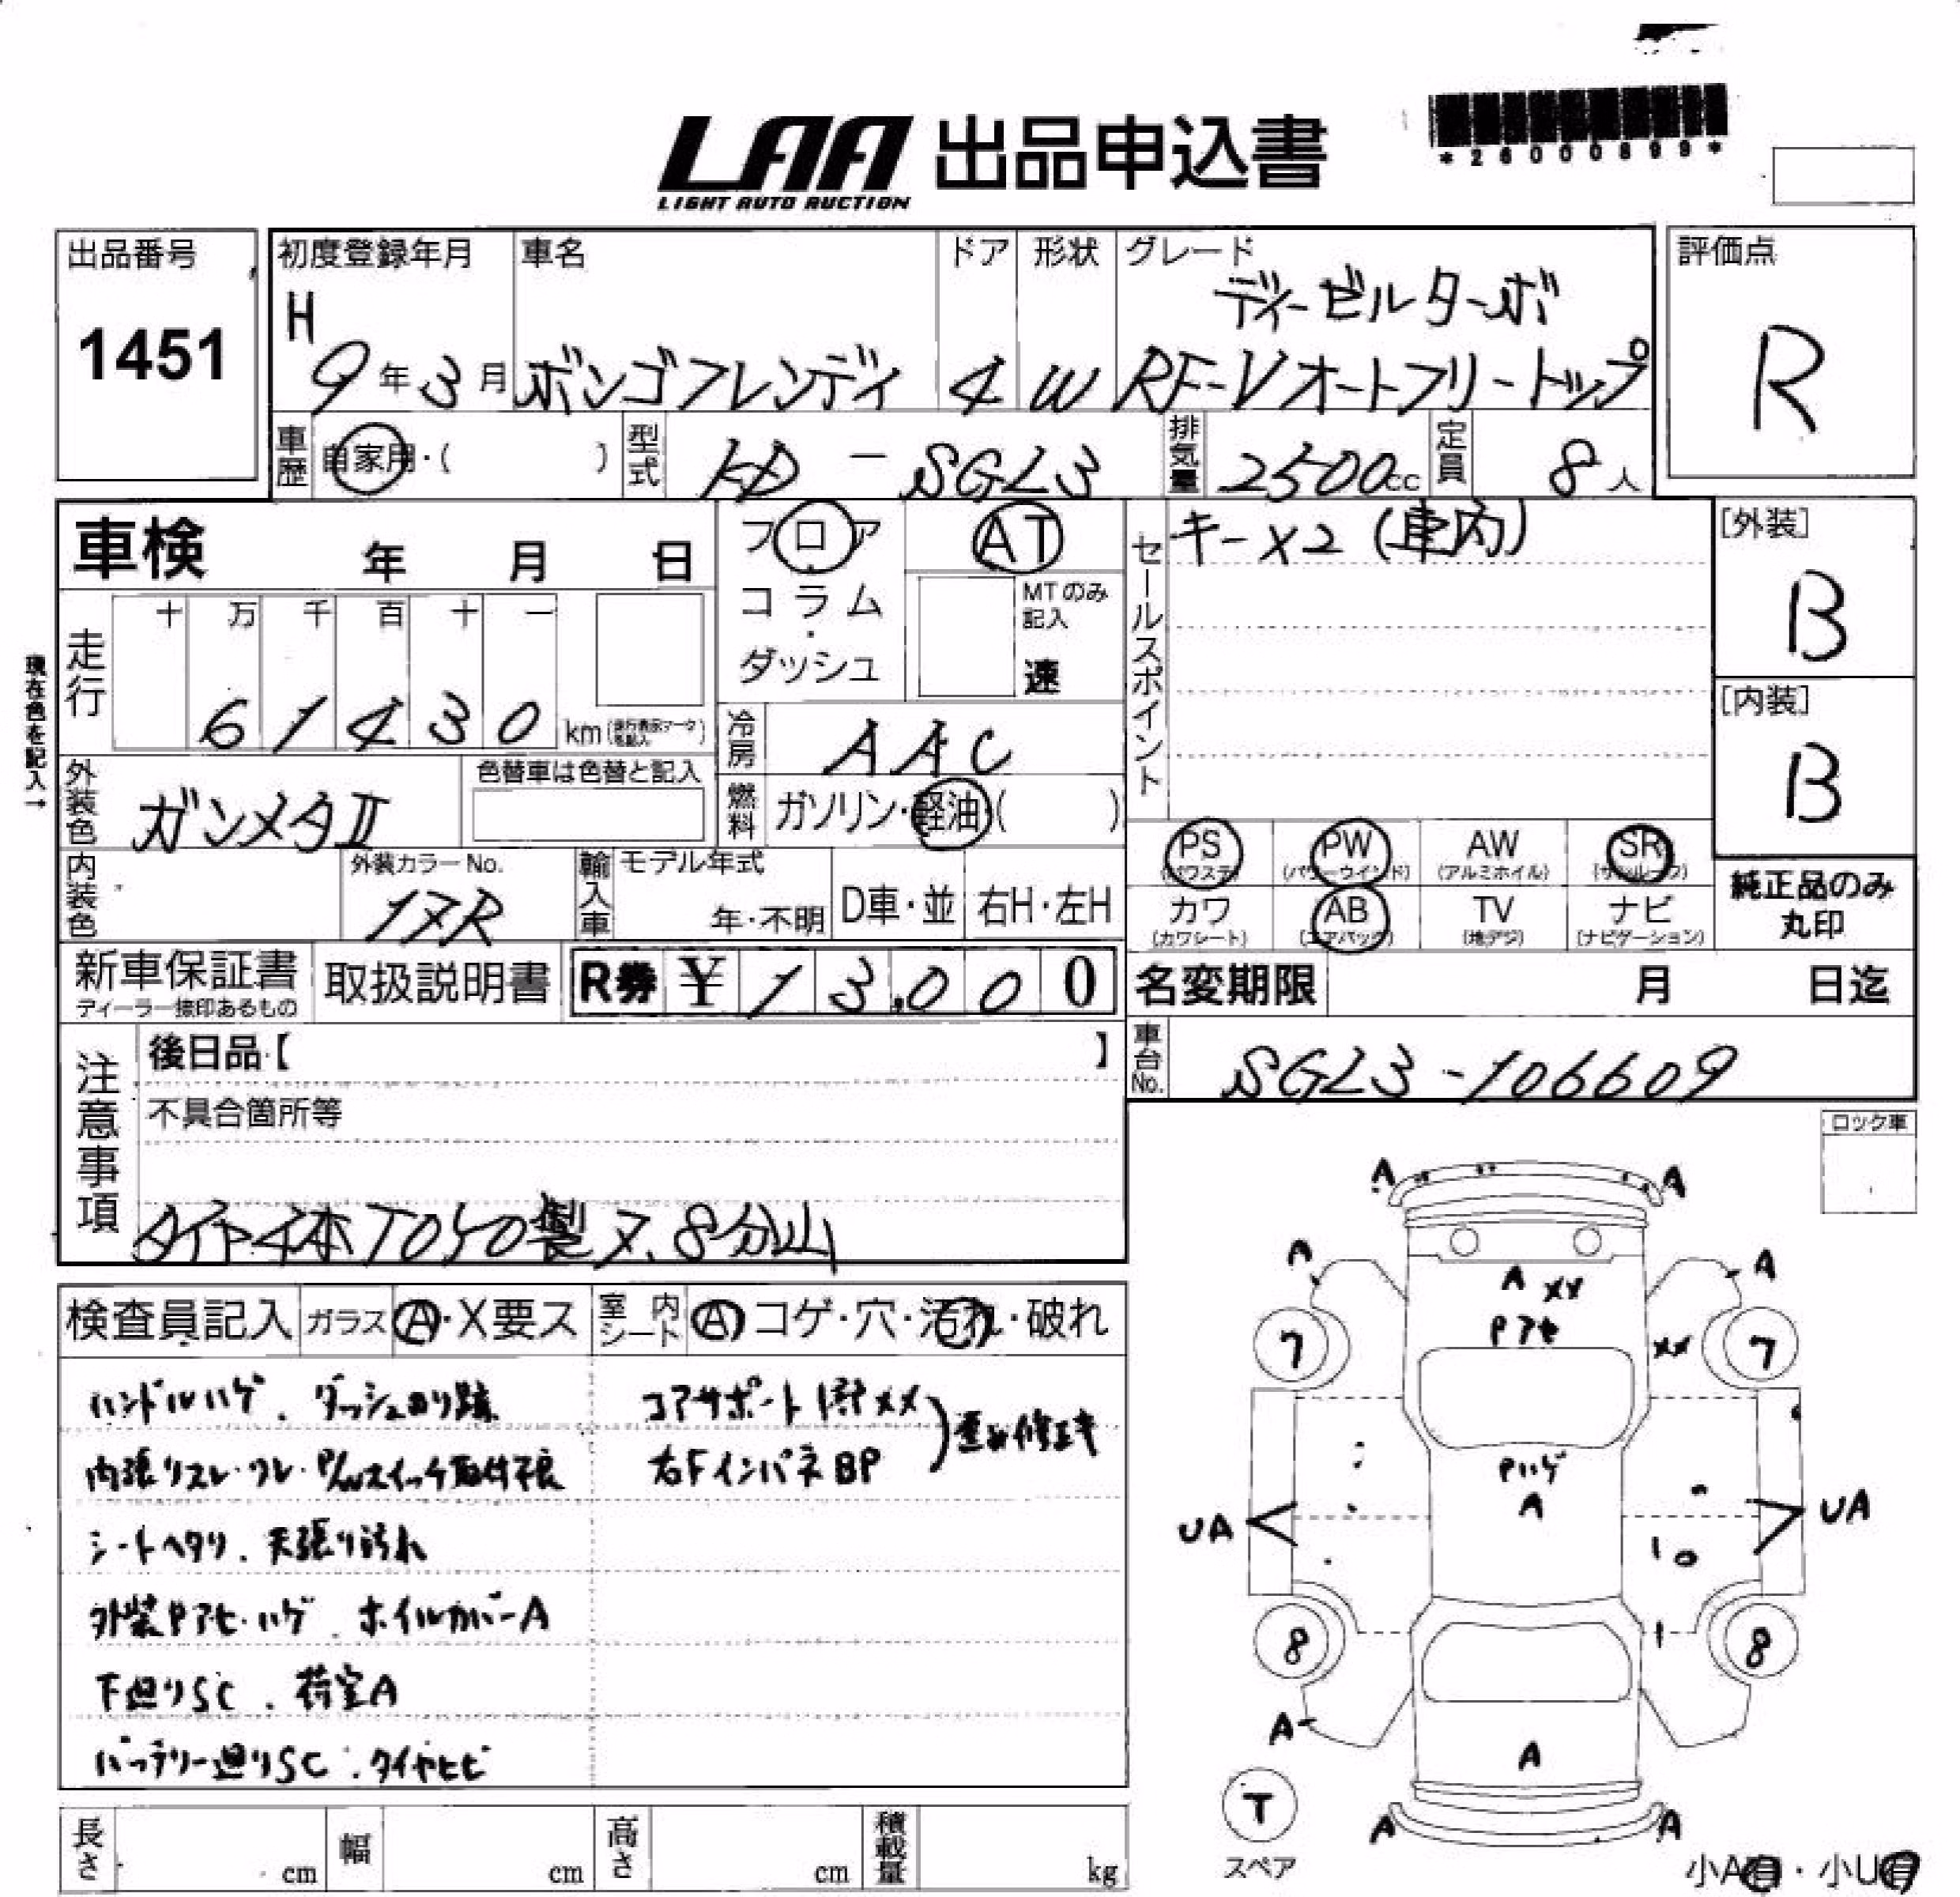 LAA 出品申込書
LIGHT AUTO AUCTION
*26000899*
出品番号
1451
初度登録年月
H
9年3月
車名
ボンゴフレンディ
ドア
4
形状
W
グレード
ディーゼルターボ
RF-Vオートフリートップ
評価点
R
車歴
自家用・( )
型式
KD-SGL3
排気量
2500cc
定員
8人
車検 年 月 日
フロア
コラム
・
ダッシュ
AT
MTのみ
記入
速
セールスポイント
キー×2(車内)
[外装]
B
[内装]
B
現在色を記入→
走行
十 万 千 百 十 一
6 1 4 3 0 km
冷房
AAC
外装色
ガンメタⅡ
色替車は色替と記入
燃料
ガソリン・軽油・( )
内装色
外装カラーNo.
17R
輸入車
モデル年式
年・不明
D車・並
右H・左H
PS
(パワステ)
PW
(パワーウインド)
AW
(アルミホイル)
SR
(サンルーフ)
カワ
(カワシート)
AB
(エアバック)
TV
(地デジ)
ナビ
(ナビゲーション)
純正品のみ
丸印
新車保証書
ディーラー捺印あるもの
取扱説明書
R券 ¥13,000
名変期限 月 日迄
注意事項
後日品【 】
不具合箇所等
タイヤ4本TOYO製7、8分山
車台No.
SGL3-106609
ロック車
検査員記入
ガラス A・X要ス
室内シート A コゲ・穴・汚れ・破れ
ハンドルハゲ、ダッシュのり跡
内張りスレ・ワレ・P/Wスイッチ取付不良
シートヘタリ、天張り汚れ
外装Pアセ・ハゲ、ホイルカバーA
下廻りSC、荷室A
バッテリー廻りSC、タイヤヒビ
コアサポート XX
右FインパネBP
歪み修正キ
A
A
A
A
A XX
Pアセ
XX
7
7
Pハゲ
A
UA
UA
8
8
A
A
T
スペア
A
A
小A有・小U有
長さ cm
幅 cm
高さ cm
積載量 kg